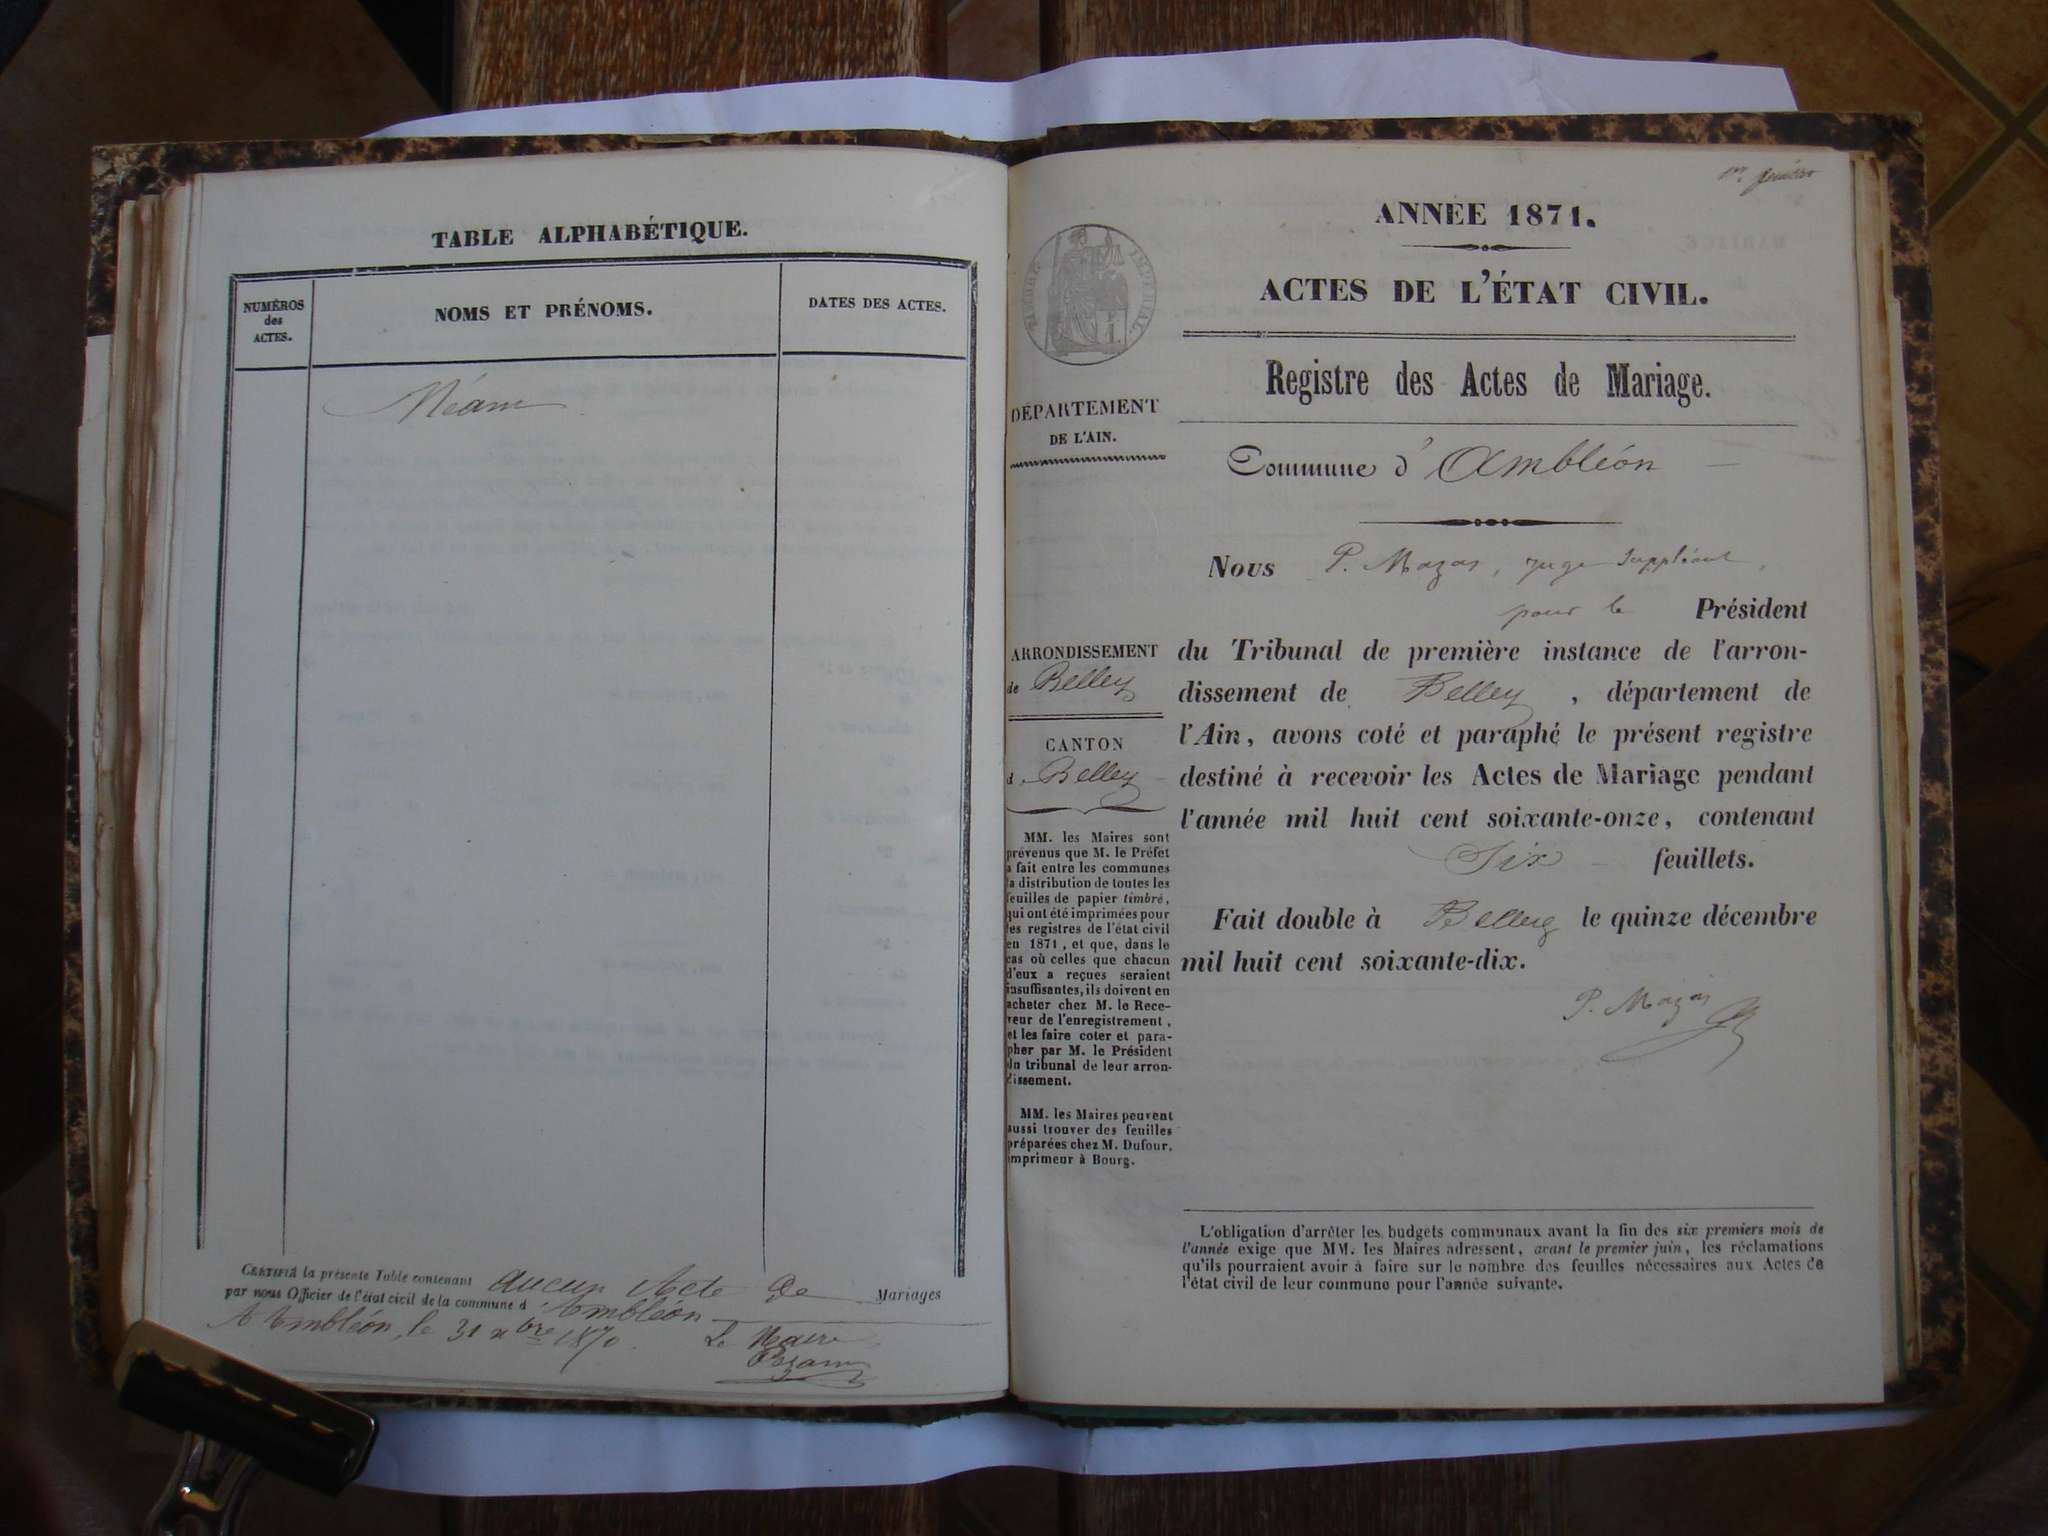 TABLE ALPHABÉTIQUE.
NUMÉROS
des
ACTES.
NOMS ET PRÉNOMS.
DATES DES ACTES.
Néant
CERTIFIÉ la présente Table contenant aucun Acte de Mariages
par nous Officier de l'état civil de la commune d'Ambléon
A Ambléon, le 31 xbre 1870. Le Maire
1er feuillet
ANNÉE 1871.
ACTES DE L'ÉTAT CIVIL.
TIMBRE IMPÉRIAL
Registre des Actes de Mariage.
DÉPARTEMENT
DE L'AIN.
Commune d'Ambléon
Nous P. Mazas, juge suppléant,
pour le Président
ARRONDISSEMENT
de Belley
du Tribunal de première instance de l'arron-
dissement de Belley, département de
l'Ain, avons coté et paraphé le présent registre
destiné à recevoir les Actes de Mariage pendant
l'année mil huit cent soixante-onze, contenant
Six feuillets.
Fait double à Belley le quinze décembre
mil huit cent soixante-dix.
P. Mazas
CANTON
d Belley
MM. les Maires sont
prévenus que M. le Préfet
a fait entre les communes
la distribution de toutes les
feuilles de papier timbré,
qui ont été imprimées pour
les registres de l'état civil
en 1871, et que, dans le
cas où celles que chacun
d'eux a reçues seraient
insuffisantes, ils doivent en
acheter chez M. le Rece-
veur de l'enregistrement,
et les faire coter et para-
pher par M. le Président
du tribunal de leur arron-
dissement.
MM. les Maires peuvent
aussi trouver des feuilles
préparées chez M. Dufour,
imprimeur à Bourg.
L'obligation d'arrêter les budgets communaux avant la fin des six premiers mois de
l'année exige que MM. les Maires adressent, avant le premier juin, les réclamations
qu'ils pourraient avoir à faire sur le nombre des feuilles nécessaires aux Actes de
l'état civil de leur commune pour l'année suivante.